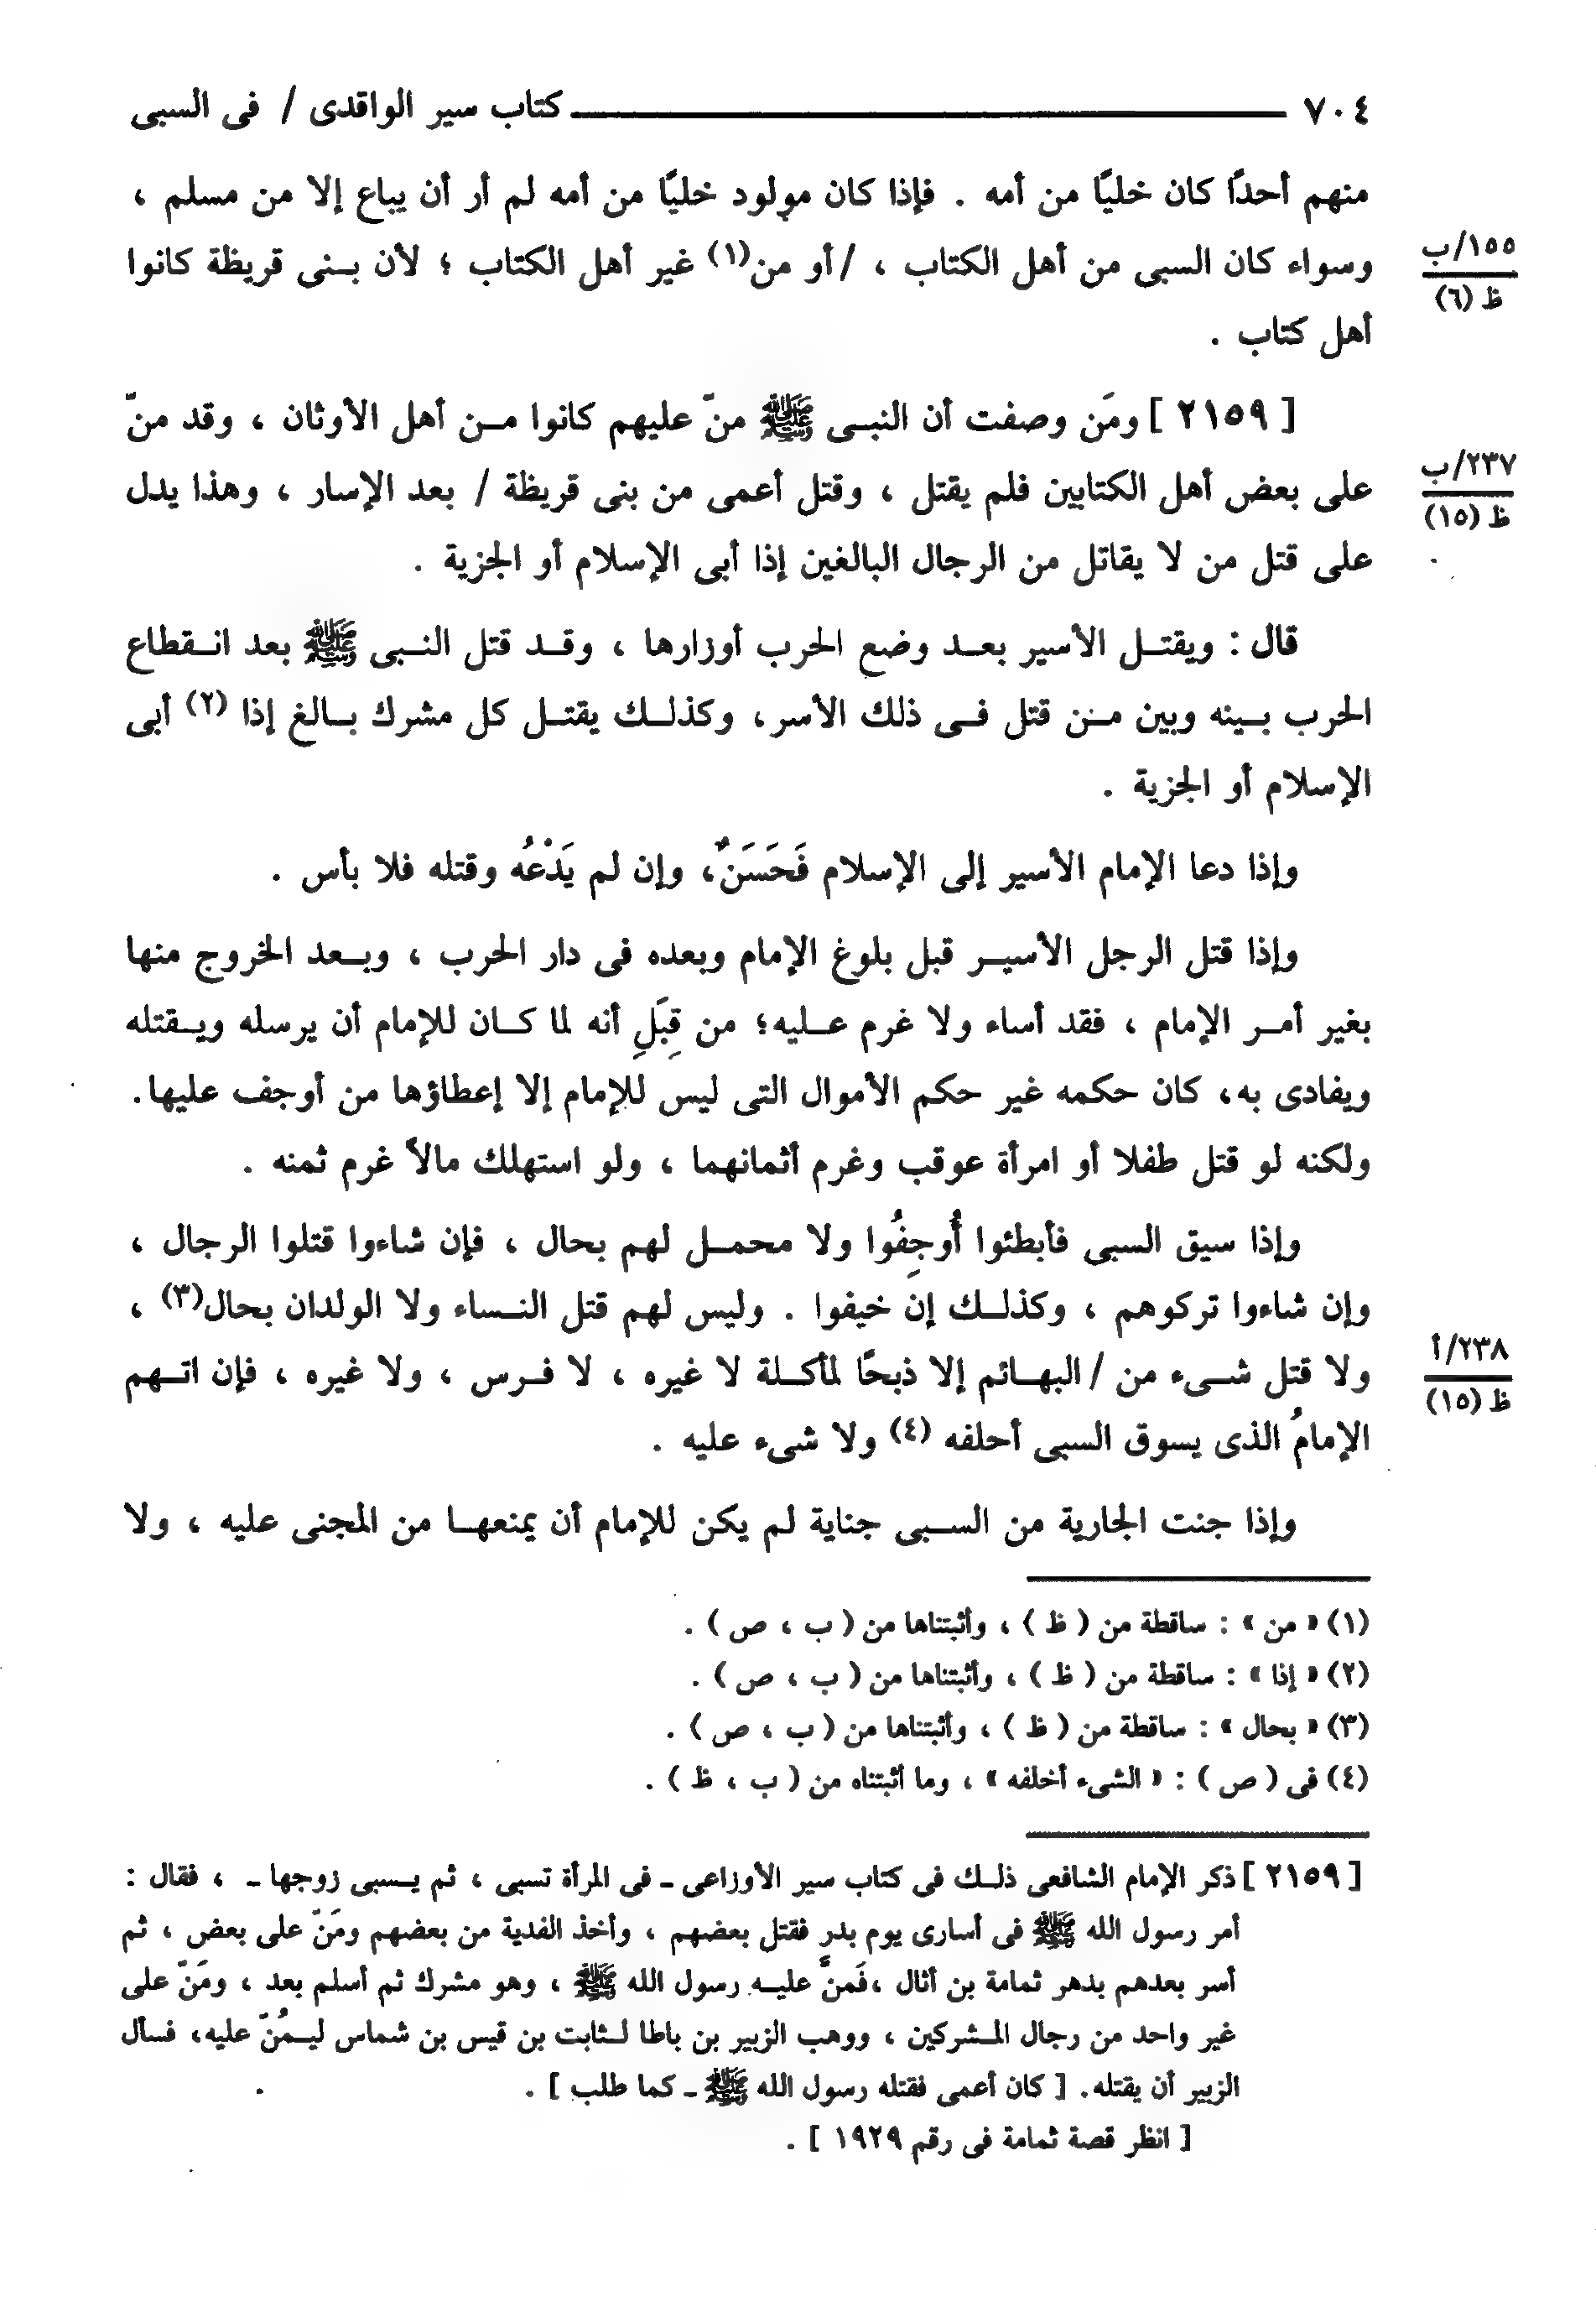 ٧٠٤ كتاب سير الواقدى / فى السبى
منهم أحدًا كان خليًا من أمه . فإذا كان مولود خليًا من أمه لم أر أن يباع إلا من مسلم ،
وسواء كان السبى من أهل الكتاب ، /أو من(١) غير أهل الكتاب ؛ لأن بنى قريظة كانوا
١٥٥/ب
ظ (٦)
أهل كتاب .
[ ٢١٥٩ ] ومَن وصفت أن النبى ﷺ منّ عليهم كانوا من أهل الأوثان ، وقد منّ
على بعض أهل الكتابين فلم يقتل ، وقتل أعمى من بنى قريظة / بعد الإسار ، وهذا يدل
٢٣٧/ب
ظ (١٥)
على قتل من لا يقاتل من الرجال البالغين إذا أبى الإسلام أو الجزية .
قال : ويقتل الأسير بعد وضع الحرب أوزارها ، وقد قتل النبى ﷺ بعد انقطاع
الحرب بينه وبين من قتل فى ذلك الأسر، وكذلك يقتل كل مشرك بالغ إذا (٢) أبى
الإسلام أو الجزية .
وإذا دعا الإمام الأسير إلى الإسلام فَحَسَنٌ، وإن لم يَدْعُه وقتله فلا بأس .
وإذا قتل الرجل الأسير قبل بلوغ الإمام وبعده فى دار الحرب ، وبعد الخروج منها
بغير أمر الإمام ، فقد أساء ولا غرم عليه؛ من قِبَلِ أنه لما كان للإمام أن يرسله ويقتله
ويفادى به، كان حكمه غير حكم الأموال التى ليس للإمام إلا إعطاؤها من أوجف عليها.
ولكنه لو قتل طفلا أو امرأة عوقب وغرم أثمانهما ، ولو استهلك مالاً غرم ثمنه .
وإذا سيق السبى فأبطئوا أُوجِفُوا ولا محمل لهم بحال ، فإن شاءوا قتلوا الرجال ،
وإن شاءوا تركوهم ، وكذلك إن خيفوا . وليس لهم قتل النساء ولا الولدان بحال(٣) ،
ولا قتل شىء من /البهائم إلا ذبحًا لمأكلة لا غيره ، لا فرس ، ولا غيره ، فإن اتهم
٢٣٨/أ
ظ (١٥)
الإمامُ الذى يسوق السبى أحلفه (٤) ولا شىء عليه .
وإذا جنت الجارية من السبى جناية لم يكن للإمام أن يمنعها من المجنى عليه ، ولا
(١) « من » : ساقطة من ( ظ ) ، وأثبتناها من ( ب ، ص ) .
(٢) « إذا » : ساقطة من ( ظ ) ، وأثبتناها من ( ب ، ص ) .
(٣) « بحال » : ساقطة من ( ظ ) ، وأثبتناها من ( ب ، ص ) .
(٤) فى ( ص ) : « الشىء أخلفه » ، وما أثبتناه من ( ب ، ظ ) .
[ ٢١٥٩ ] ذكر الإمام الشافعى ذلك فى كتاب سير الأوزاعى ـ فى المرأة تسبى ، ثم يسبى زوجها ـ ، فقال :
أمر رسول الله ﷺ فى أسارى يوم بدر فقتل بعضهم ، وأخذ الفدية من بعضهم ومَنّ على بعض ، ثم
أسر بعدهم بدهر ثمامة بن أثال ،فَمنَّ عليه رسول الله ﷺ ، وهو مشرك ثم أسلم بعد ، ومَنّ على
غير واحد من رجال المشركين ، ووهب الزبير بن باطا لثابت بن قيس بن شماس ليمُنّ عليه، فسأل
الزبير أن يقتله. [ كان أعمى فقتله رسول الله ﷺ ـ كما طلب ] .
[ انظر قصة ثمامة فى رقم ١٩٢٩ ] .